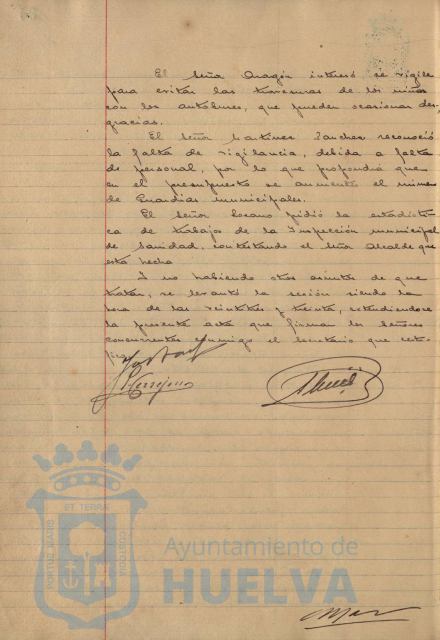 El Señor Aragón interesó se vigile
para evitar las travesuras de los niños
con los autobuses, que pueden ocasionar des-
gracias.
El Señor Martinez Sanchez reconoció
la falta de vigilancia, debida a falta
de personal, por lo que propondrá que
en el presupuesto se aumente el número
de Guardias municipales.
El Señor Lozano pidió la estadísti-
ca de trabajos de la Inspección municipal
de Sanidad, contestando el Señor Alcalde que
está hecha
Y no habiendo otros asuntos de que
tratar, se levantó la sesión siendo la
hora de las veintitres y treinta, extendiendose
la presente acta que firman los señores
concurrentes conmigo el Secretario que certi-
fico
PORTUS MARIS
ET TERRAE
CUSTODIA
Ayuntamiento de
HUELVA